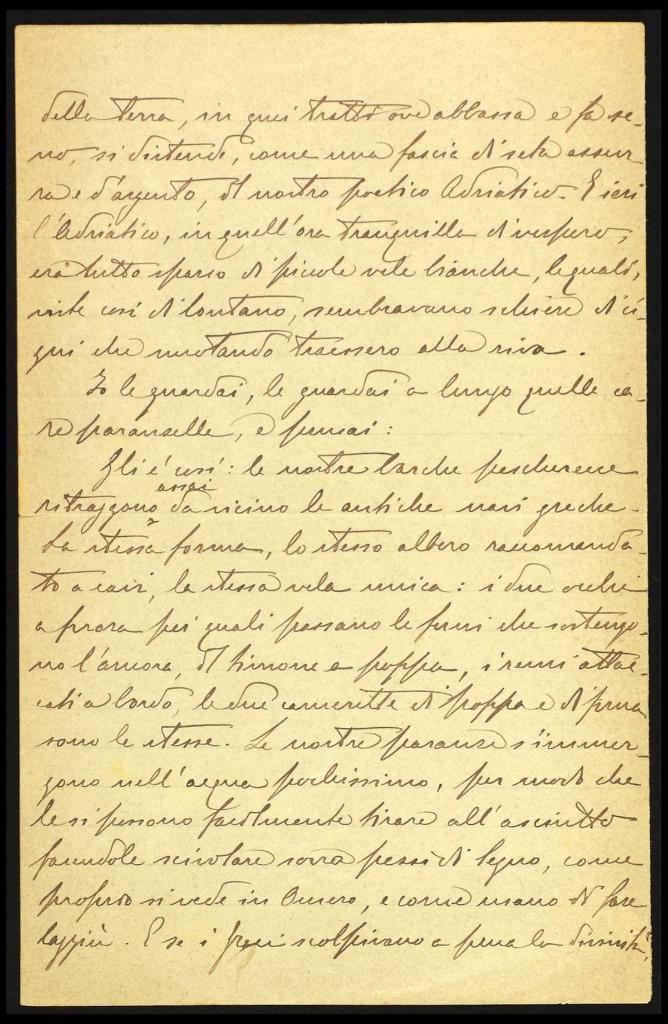 della terra, in quei tratti ove abbassa e fa se-
no, si distende, come una fascia di seta azzur-
ra e d'argento, il nostro poetico Adriatico. E ieri
l'Adriatico, in quell'ora tranquilla di vespero,
era tutto sparso di piccole vele bianche, le quali,
viste così di lontano, sembravano schiere di ci-
gni che nuotando traessero alla riva.
Io le guardai, le guardai a lungo quelle ca-
re paranzelle, e pensai:
Gli è così: le nostre barche pescherecce
ritraggono assai da vicino le antiche navi greche.
La stessa forma, lo stesso albero raccomanda-
to a cavi, la stessa vela unica: i due occhi
a prora pei quali passano le funi che sostengo-
no l'áncora, il timone a poppa, i remi attac-
cati a bordo, le due camerette di poppa e di prua
sono le stesse. Le nostre paranze s'immer-
gono nell'acqua pochissimo, per modo che
le si possono facilmente tirare all'asciutto
facendole scivolare sovra pezzi di legno, come
proprio si vede in Omero, e come usano di fare
laggiù. E se i Greci scolpivano a prua la divinità,